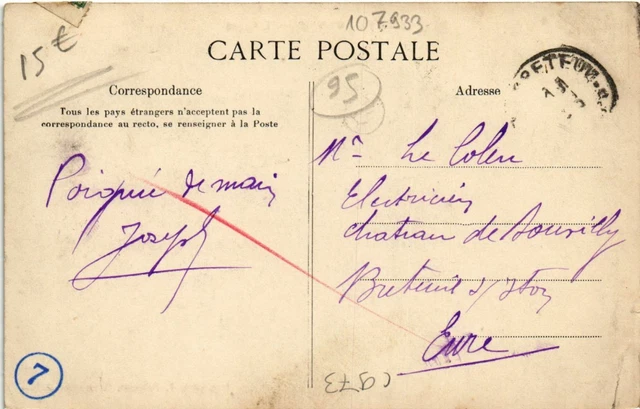 107933
15€
CARTE POSTALE
95
Correspondance
Adresse
Tous les pays étrangers n'acceptent pas la
correspondance au recto, se renseigner à la Poste
Poignée de main
Joseph
Mr Le Colen
Electricien
Chateau de
Breteuil s/ Iton
Eure
7
C973